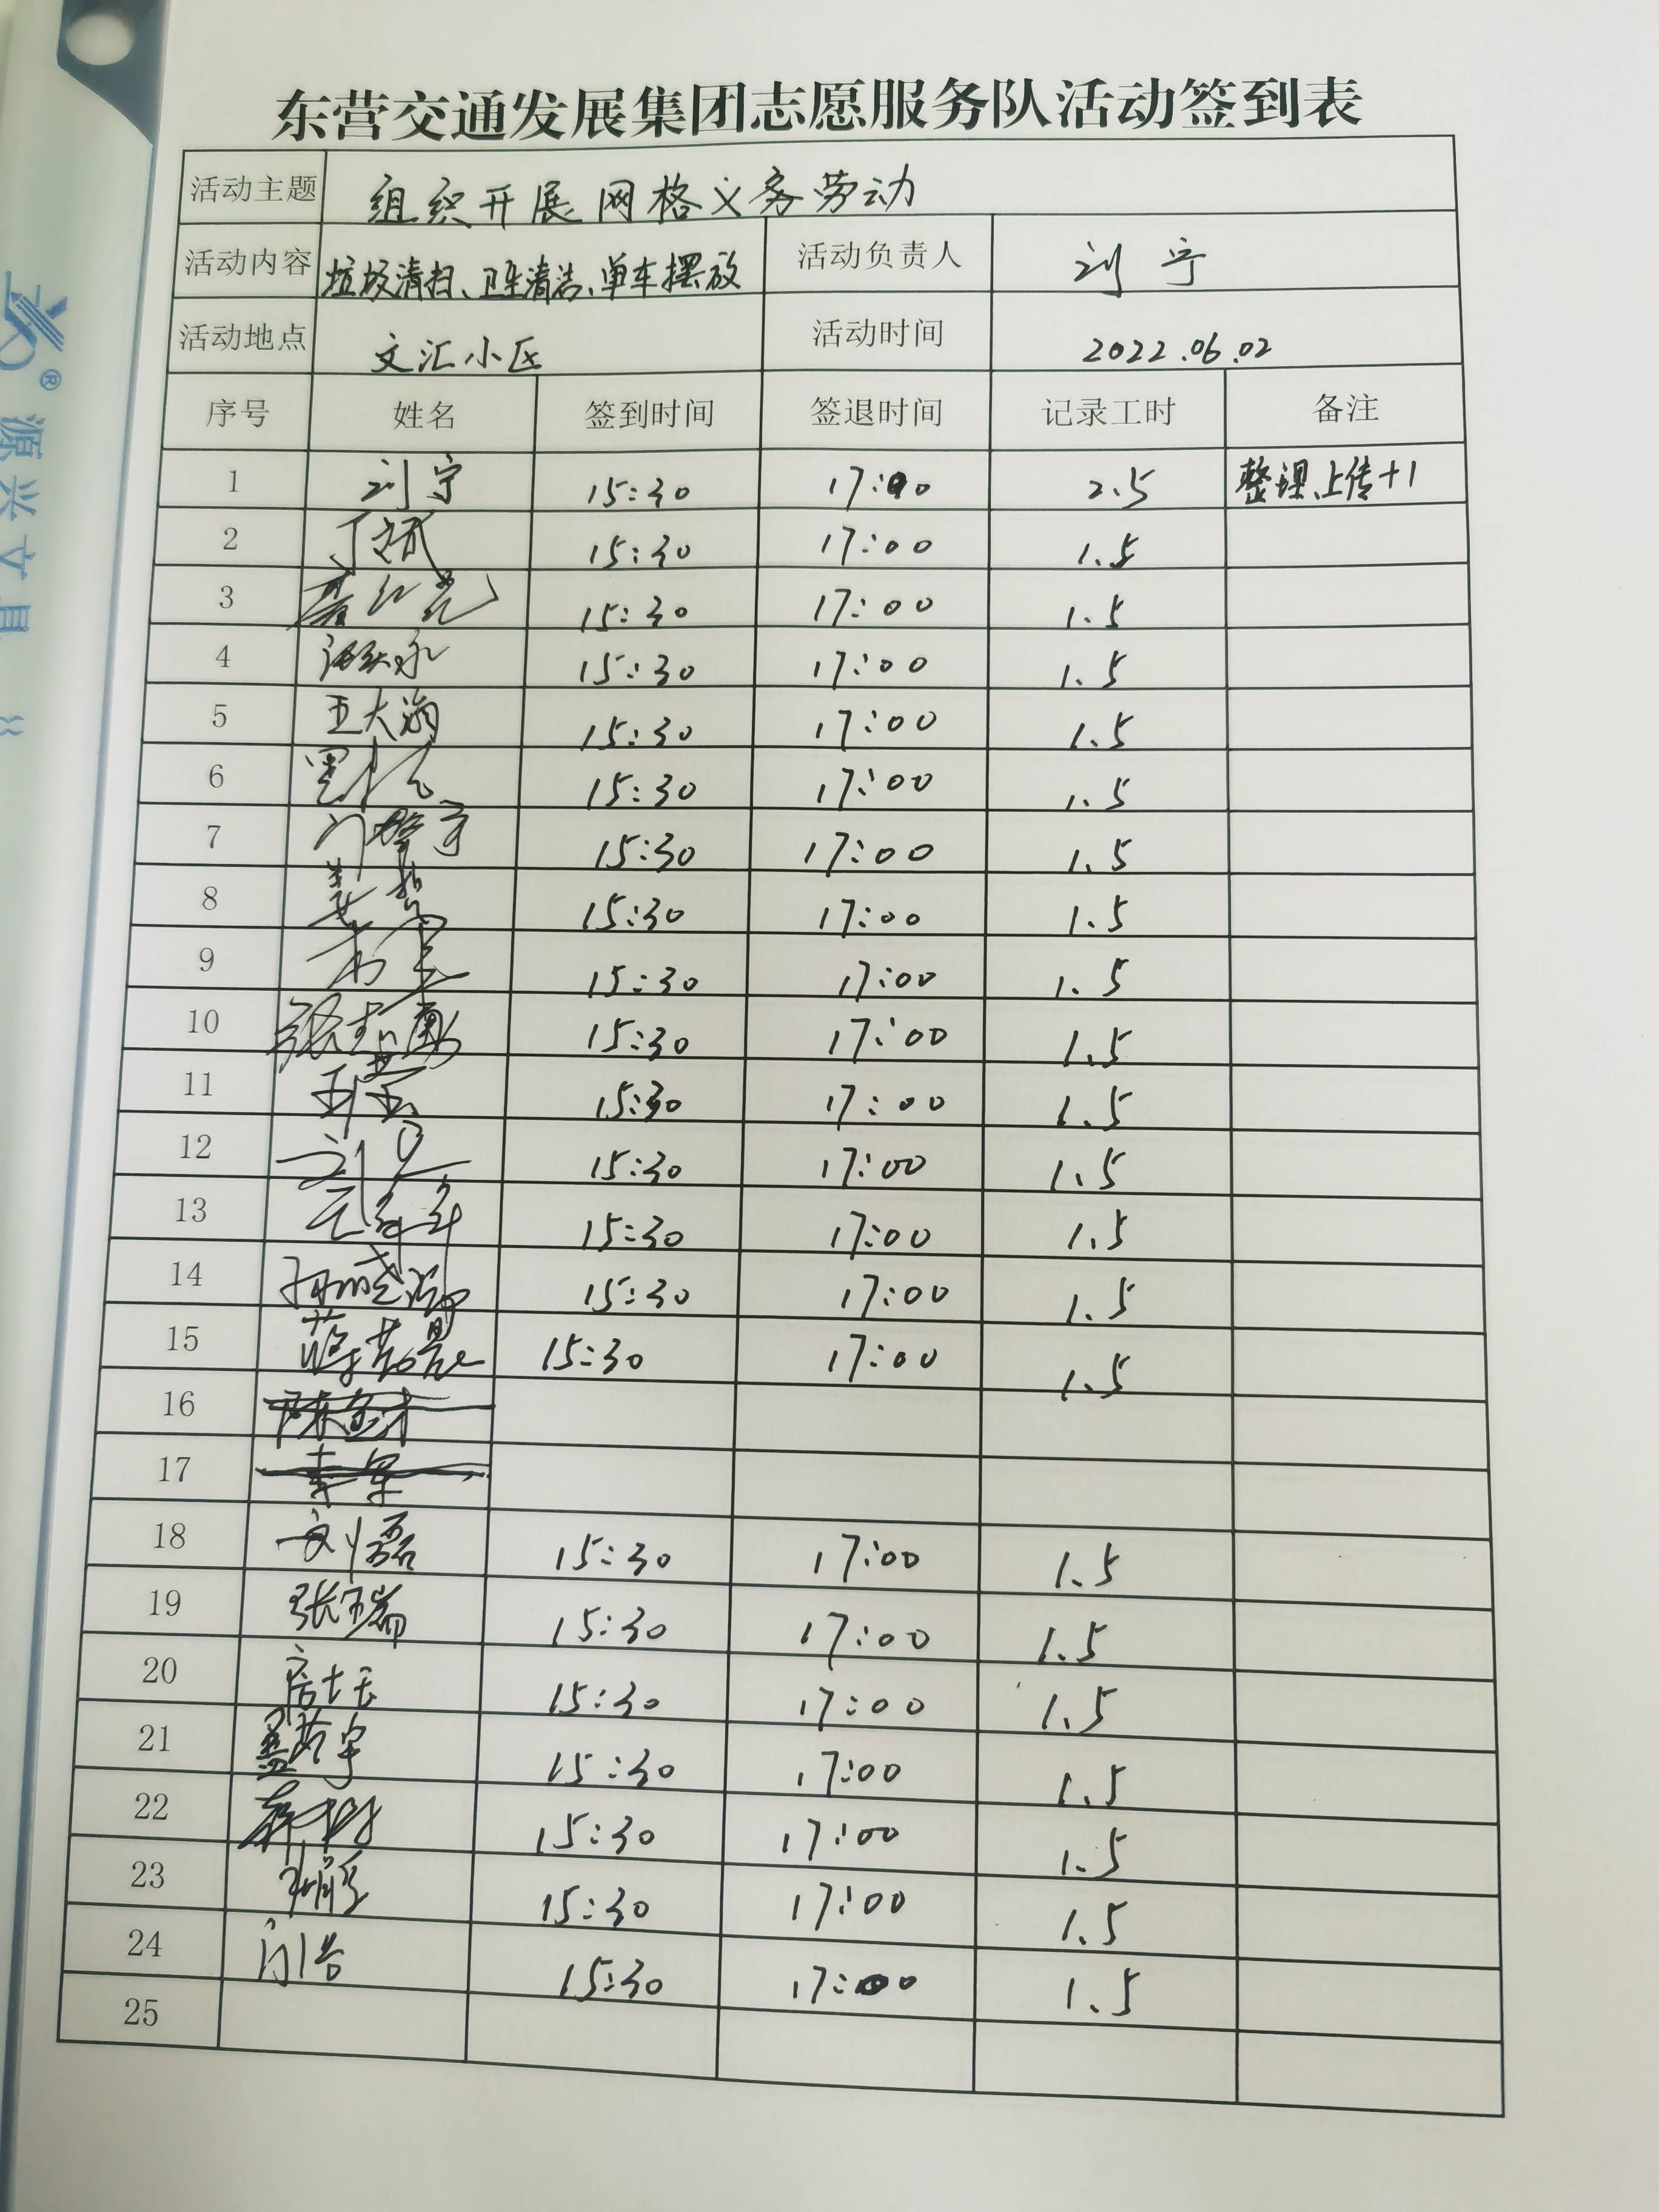 东营交通发展集团志愿服务队活动签到表
活动主题 组织开展网格义务劳动
活动内容 垃圾清扫、卫生清洁、单车摆放 活动负责人 刘宁
活动地点 文汇小区 活动时间 2022.06.02
序号 姓名 签到时间 签退时间 记录工时 备注
1 刘宁 15:30 17:00 2.5 整理、上传+1
2 15:30 17:00 1.5
3 15:30 17:00 1.5
4 15:30 17:00 1.5
5 王大海 15:30 17:00 1.5
6 15:30 17:00 1.5
7 15:30 17:00 1.5
8 15:30 17:00 1.5
9 15:30 17:00 1.5
10 15:30 17:00 1.5
11 15:30 17:00 1.5
12 15:30 17:00 1.5
13 15:30 17:00 1.5
14 15:30 17:00 1.5
15 15:30 17:00 1.5
16
17
18 刘磊 15:30 17:00 1.5
19 张玉瑞 15:30 17:00 1.5
20 15:30 17:00 1.5
21 15:30 17:00 1.5
22 15:30 17:00 1.5
23 15:30 17:00 1.5
24 15:30 17:00 1.5
25
® 源兴文具